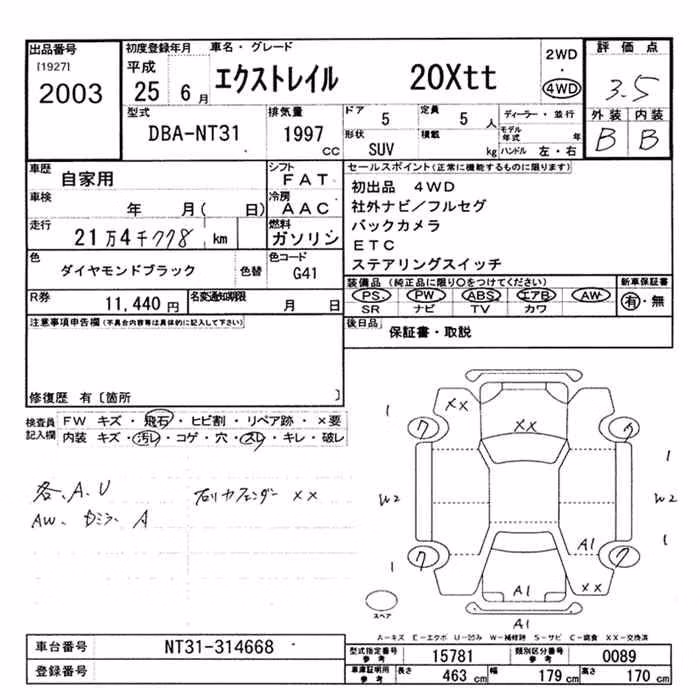 出品番号
[1927]
2003
初度登録年月
平成
25 6月
車名・グレード
エクストレイル 20Xtt
2WD
・
4WD
評価点
3.5
外装 内装
B B
型式
DBA-NT31
排気量
1997
CC
ドア
5
定員
5 人
形状
SUV
積載
kg
ディーラー・並行
モデル年式 年
ハンドル 左・右
車歴
自家用
シフト
FAT
車検
年 月( 日)
冷房
AAC
走行
21万4千778 km
燃料
ガソリン
色
ダイヤモンドブラック
色替
色コード
G41
R券
11,440 円
名変通知期限
月 日
注意事項申告欄(不具合内容等は具体的に記入して下さい)
修復歴 有〔箇所 〕
セールスポイント(正常に機能するものに限ります)
初出品 4WD
社外ナビ/フルセグ
バックカメラ
ETC
ステアリングスイッチ
装備品 (純正品に限り○をつけてください)
PS PW ABS エアB AW
SR ナビ TV カワ
新車保証書
有・無
後日品
保証書・取説
検査員記入欄
FW キズ・飛石・ヒビ割・リペア跡・×要
内装 キズ・汚レ・コゲ・穴・スレ・キレ・破レ
各、A.U
AW、ドミラ A
XX
XX
XX
1
1
7
7
W2
W2
A1
1
1
7
7
A1
XX
スペア
A1
A−キズ E−エクボ U−凹み W−補修跡 S−サビ C−腐食 XX−交換済
車台番号
NT31-314668
登録番号
型式指定番号 参考
15781
類別区分番号 参考
0089
車庫証明用 参考
長さ 463 cm
幅 179 cm
高さ 170 cm